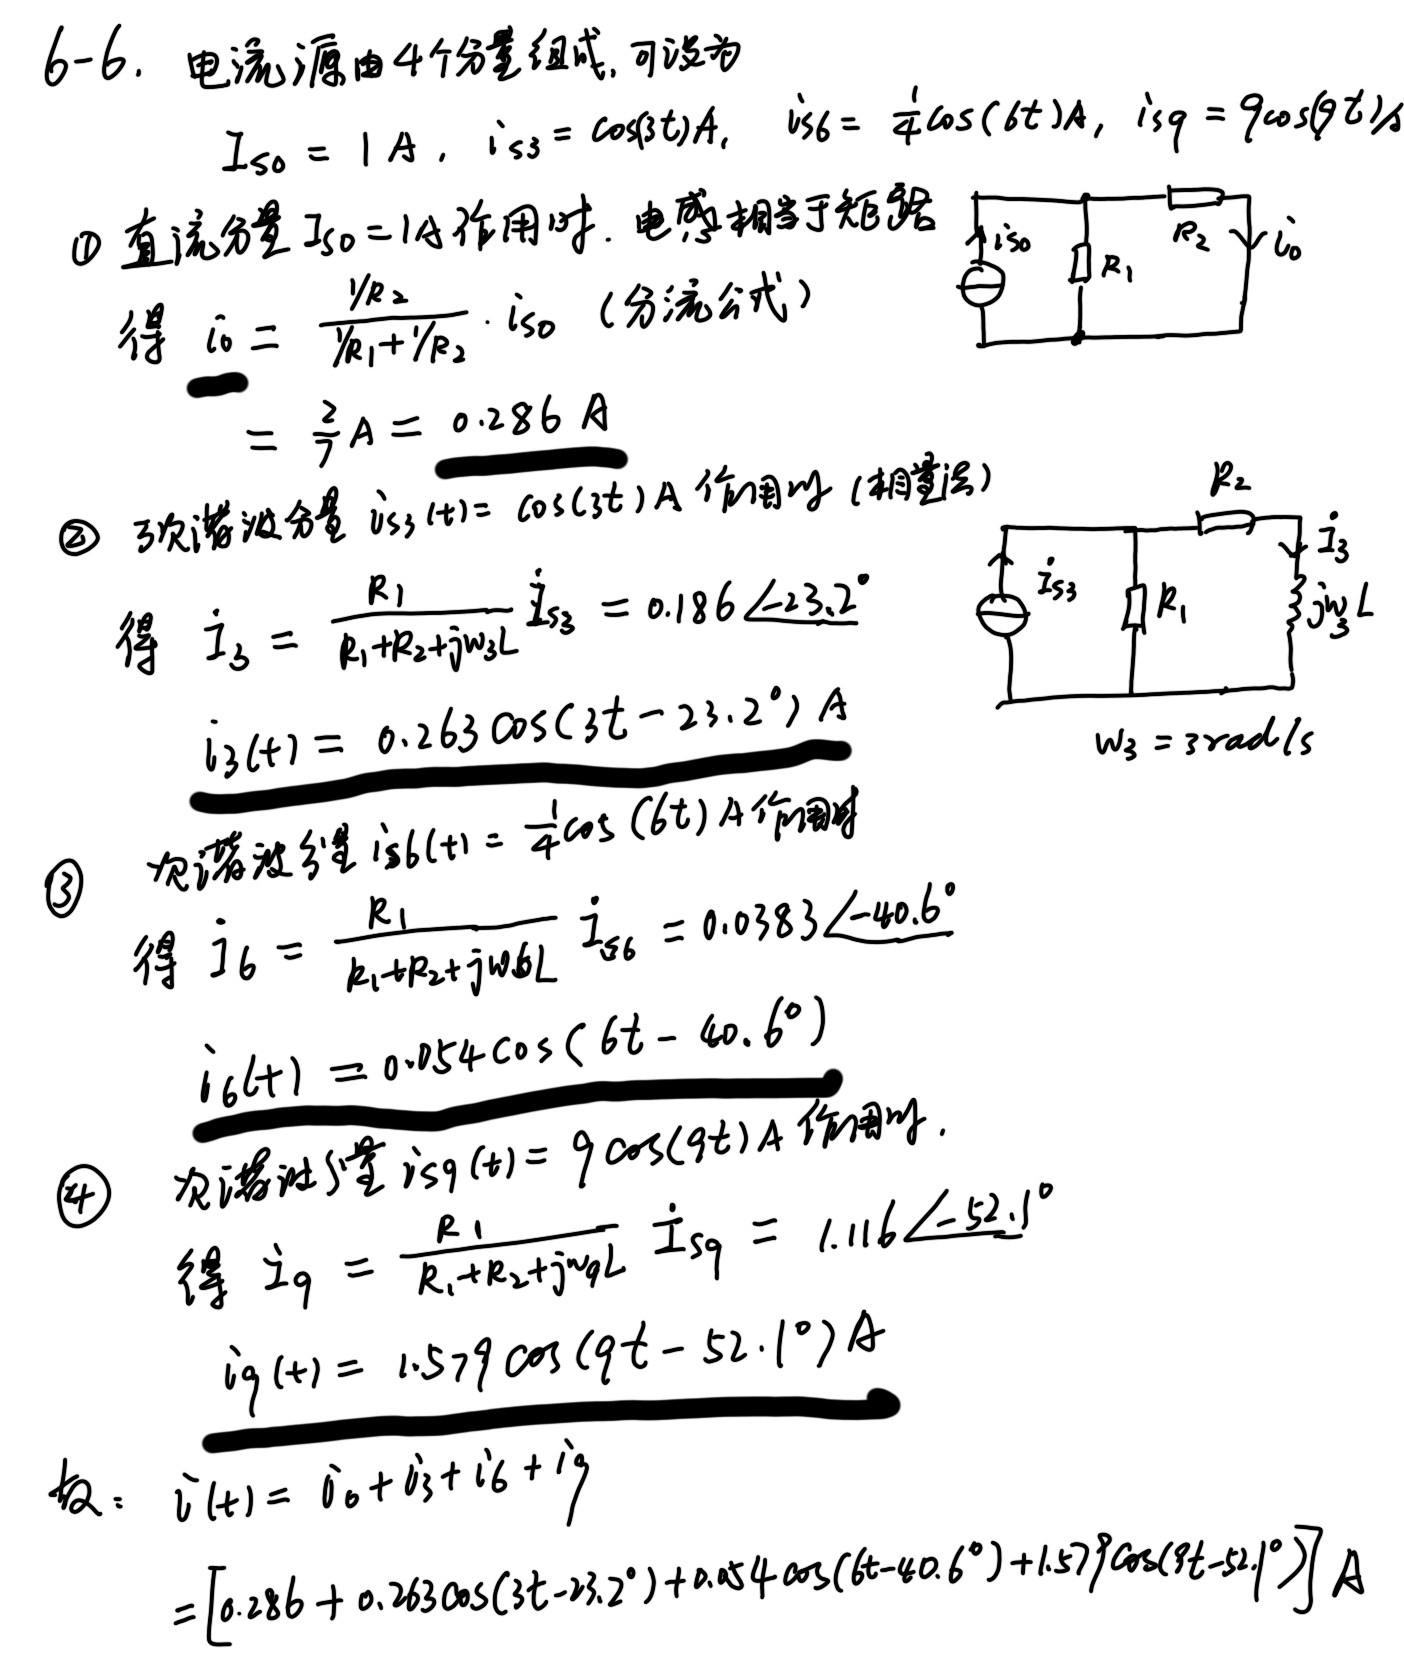 6-6. 电流源由4个分量组成,可设为
I_{S0} = 1A, i_{S3} = cos(3t)A, i_{S6} = \frac{1}{4}cos(6t)A, i_{S9} = 9cos(9t)A
① 直流分量 I_{S0}=1A作用时.电感相当于短路
得 i_0 = \frac{1/R_2}{1/R_1+1/R_2} · i_{S0} (分流公式)
= \frac{2}{7}A = 0.286 A
i_{S0} R_1 R_2 i_0
② 3次谐波分量 i_{S3}(t)= cos(3t)A 作用时 (相量法)
得 İ_3 = \frac{R_1}{R_1+R_2+jw_3L} İ_{S3} = 0.186∠-23.2°
i_3(t) = 0.263cos(3t-23.2°) A
İ_{S3} R_1 R_2 İ_3 jw_3L
w_3 = 3rad/s
③ 次谐波分量 i_{S6}(t) = \frac{1}{4}cos(6t)A作用时
得 İ_6 = \frac{R_1}{R_1+R_2+jw_6L} İ_{S6} = 0.0383∠-40.6°
i_6(t) = 0.054cos(6t-40.6°)
④ 次谐波分量 i_{S9}(t) = 9cos(9t)A 作用时.
得 İ_9 = \frac{R_1}{R_1+R_2+jw_9L} İ_{S9} = 1.116∠-52.1°
i_9(t) = 1.579cos(9t-52.1°)A
故: i(t) = i_0+i_3+i_6+i_9
=[0.286+0.263cos(3t-23.2°)+0.054cos(6t-40.6°)+1.579cos(9t-52.1°)]A